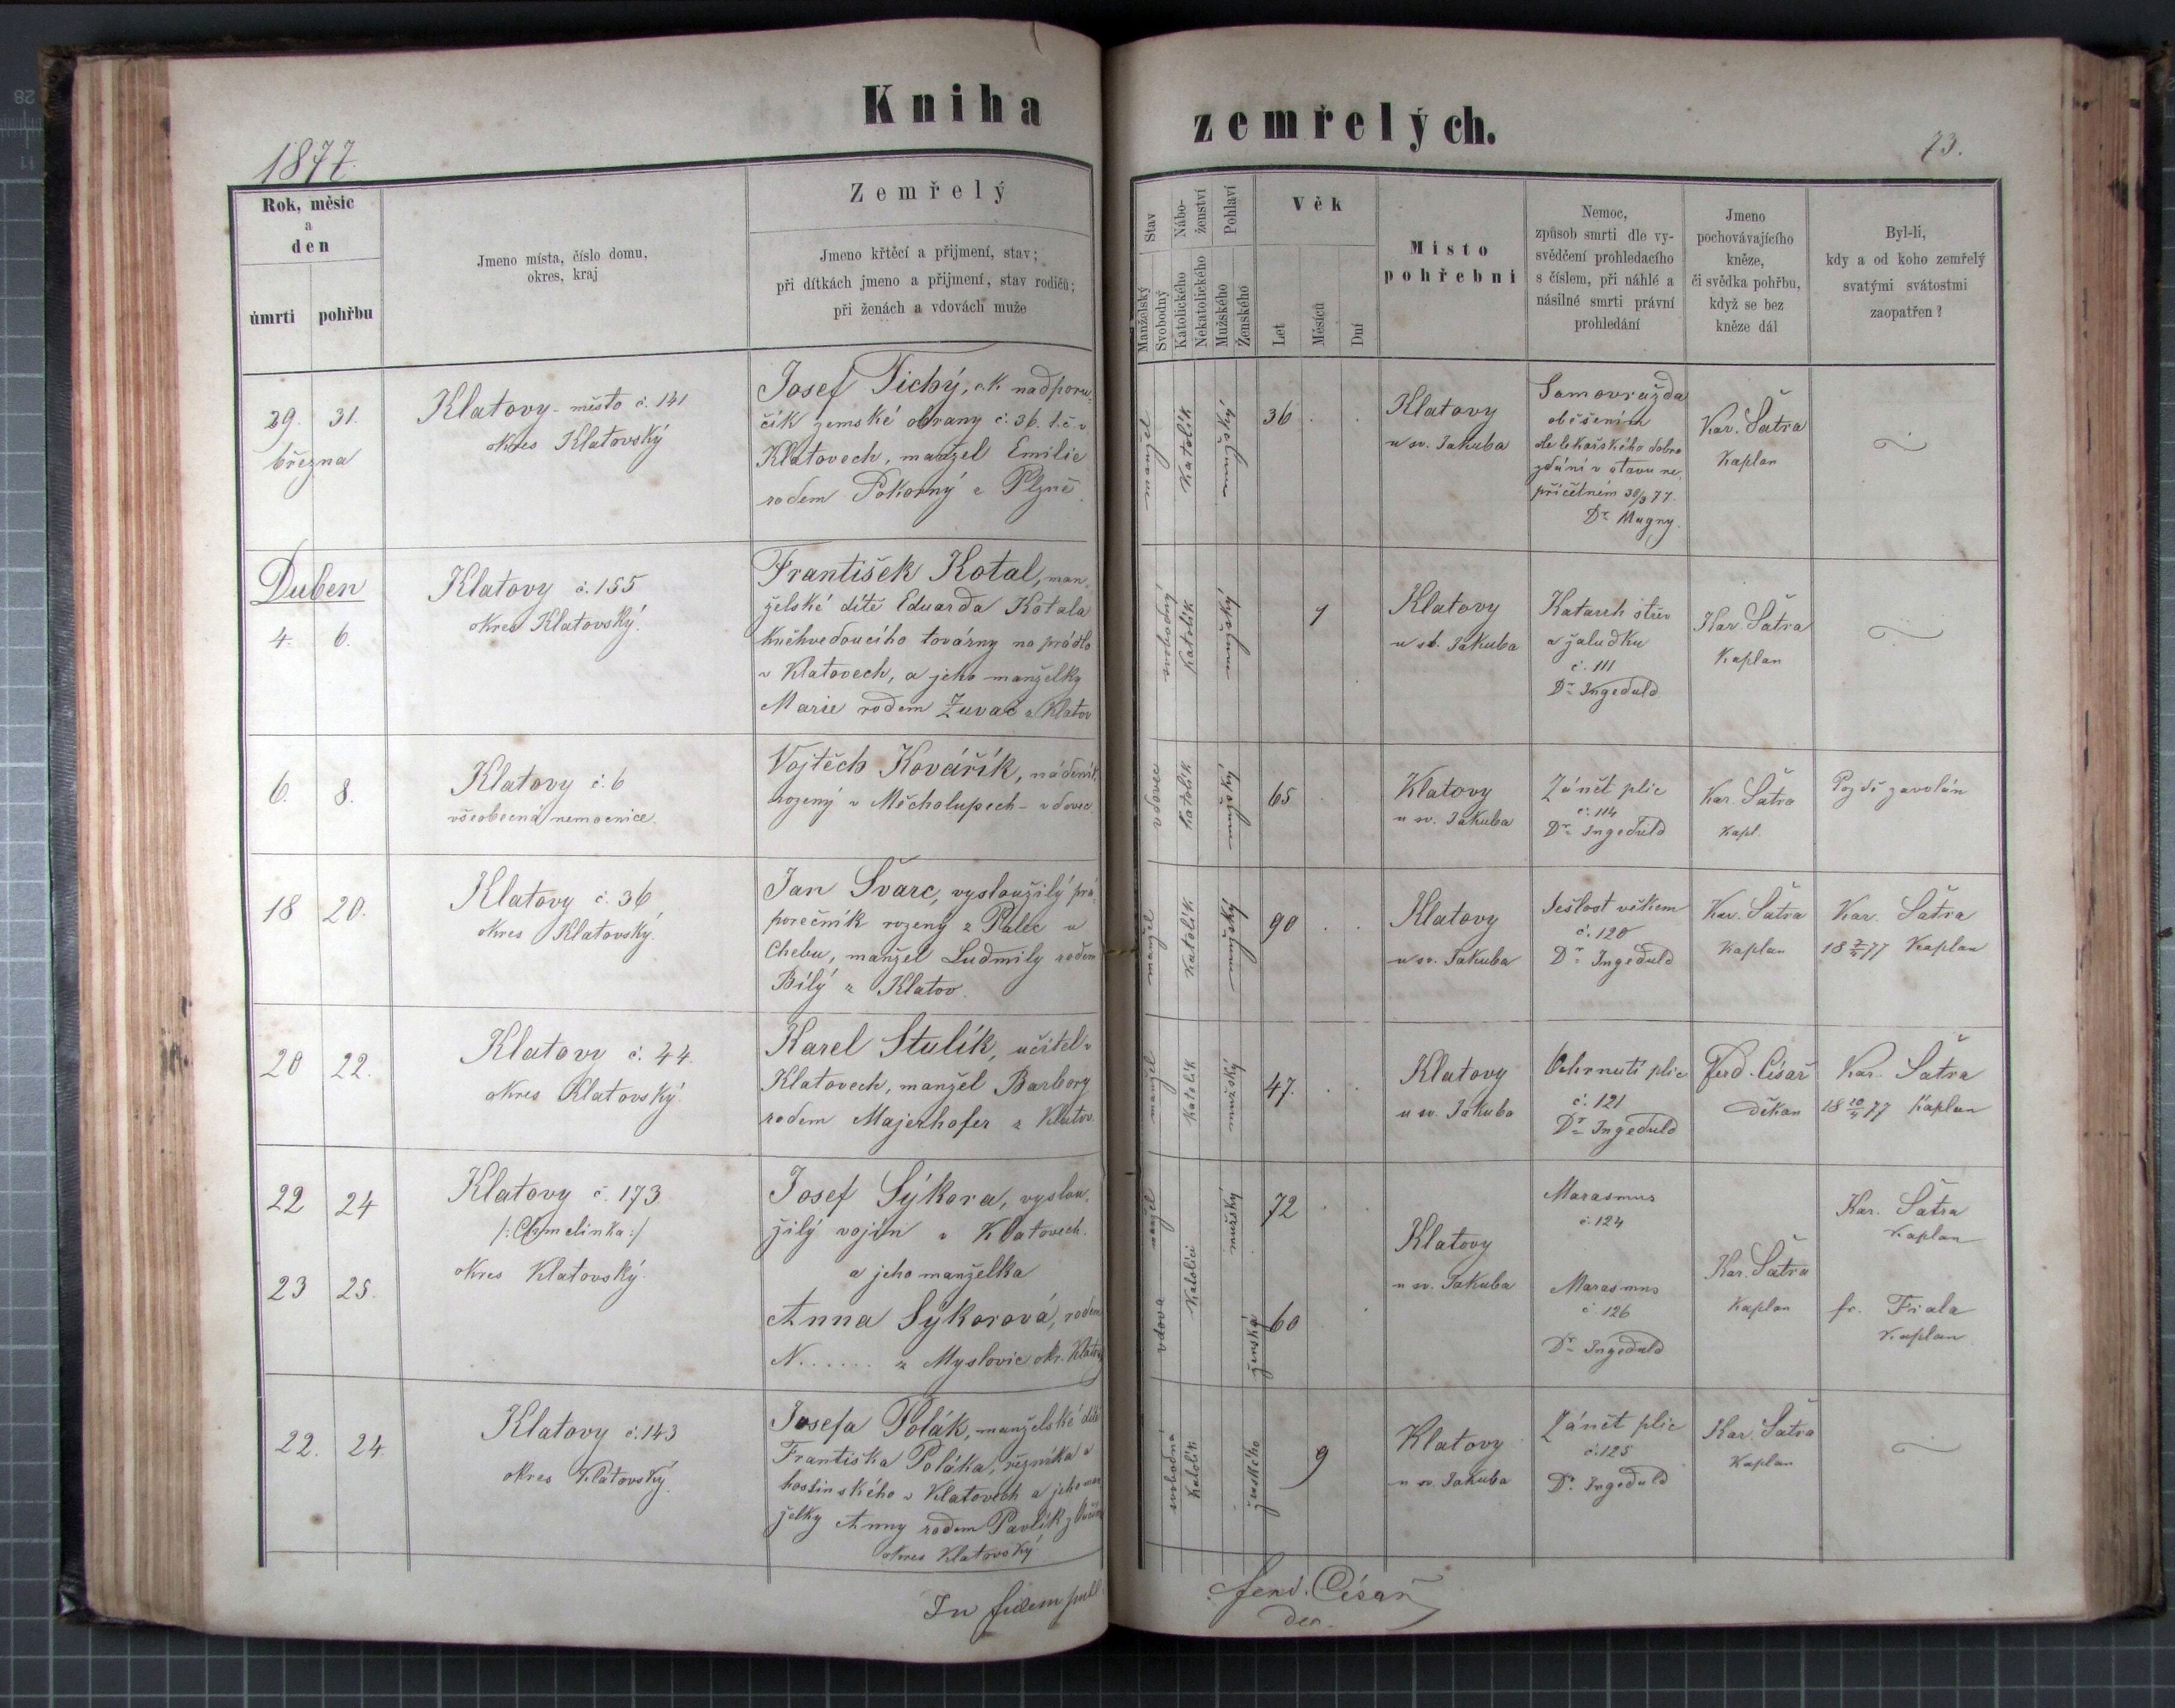 Kniha zemřelých.
1877.
73.
Rok, měsíc
a
den
úmrtí pohřbu
Jmeno místa, číslo domu,
okres, kraj
Zemřelý
Jmeno křtěcí a přijmení, stav;
při dítkách jmeno a přijmení, stav rodičů;
při ženách a vdovách muže
Stav
Manželský
Svobodný
Nábo-
ženství
Katolického
Nekatolického
Pohlaví
Mužského
Ženského
Věk
Let
Měsíců
Dní
Místo
pohřební
Nemoc,
způsob smrti dle vy-
svědčení prohledacího
s číslem, při náhlé a
násilné smrti právní
prohledání
Jmeno
pochovávajícího
kněze,
či svědka pohřbu,
když se bez
kněze dál
Byl-li,
kdy a od koho zemřelý
svatými svátostmi
zaopatřen?
29. 31.
března
Klatovy - město č. 141
okres Klatovský
Josef Tichý, c.k. nadporu-
čík zemské obrany č. 36. t.č. v
Klatovech, manžel Emilie
rodem Pokorný z Plzně.
Katolík
36
Klatovy
u sv. Jakuba
Samovražda
oběšením
dle lékařského dobro
zdání v stavu ne-
příčetném 30/3 77.
Dr. Magny.
Kar. Šatra
Kaplan
Duben
4. 6.
Klatovy č. 155
okres Klatovský.
František Kotal, man-
želské dítě Eduarda Kotala
knihvedoucího továrny na prádlo
v Klatovech, a jeho manželky
Marie rodem Zuvač z Klatov
svobodný
katolík
1
Klatovy
u sv. Jakuba
Katarrh střev
a žaludku
č. 111
Dr. Ingeduld
Kar. Šatra
Kaplan
6. 8.
Klatovy č. 6
všeobecná nemocnice.
Vojtěch Kovářík, nádeník,
rozený v Měcholupech - vdovec
vdovec
katolík
65
Klatovy
u sv. Jakuba
Zánět plic
č. 114
Dr. Ingeduld
Kar. Šatra
Kapl.
Pozdě zavolán
18 20.
Klatovy č. 36
okres Klatovský.
Jan Švarc, vysloužilý prá-
porečník rozený z Palče u
Chebu, manžel Ludmily rodem
Bílý z Klatov.
Katolík
90
Klatovy
u sv. Jakuba
Sešlost věkem
č. 120
Dr. Ingeduld
Kar. Šatra
Kaplan
Kar. Šatra
18 7/4 77 Kaplan
20 22.
Klatovy č. 44.
okres Klatovský.
Karel Stulík, učitel v
Klatovech, manžel Barbory
rodem Majerhofer z Klatov.
Katolík
47.
Klatovy
u sv. Jakuba
Ochrnutí plic
č. 121
Dr. Ingeduld
Ferd. Císař
děkan
Kar. Šatra
18 20/4 77 Kaplan
22 24
Klatovy č. 173
/: Chmelinka :/
okres Klatovský.
Josef Sýkora, vyslou-
žilý vojín v Klatovech.
72
Marasmus
č. 124
Kar. Šatra
Kaplan
Katolíci
Klatovy
u sv. Jakuba
Kar. Šatra
Kaplan
23 25.
a jeho manželka
Anna Sýkorová, rodem
N...... z Myslovic okr. Klatov
vdova
ženská
60
Marasmus
č. 126
Dr. Ingeduld
fr. Fiala
Kaplan
22. 24
Klatovy č. 143
okres Klatovský.
Josefa Polák, manželské dítě
Františka Poláka, řezníka a
hostinského v Klatovech a jeho man
želky Anny rodem Pavlík z
okres Klatovský
svobodná
katolík
ženského
9
Klatovy
u sv. Jakuba
Zánět plic
č. 125
Dr. Ingeduld
Kar. Šatra
Kaplan
In fidem publ.
Ferd. Císař
dec.